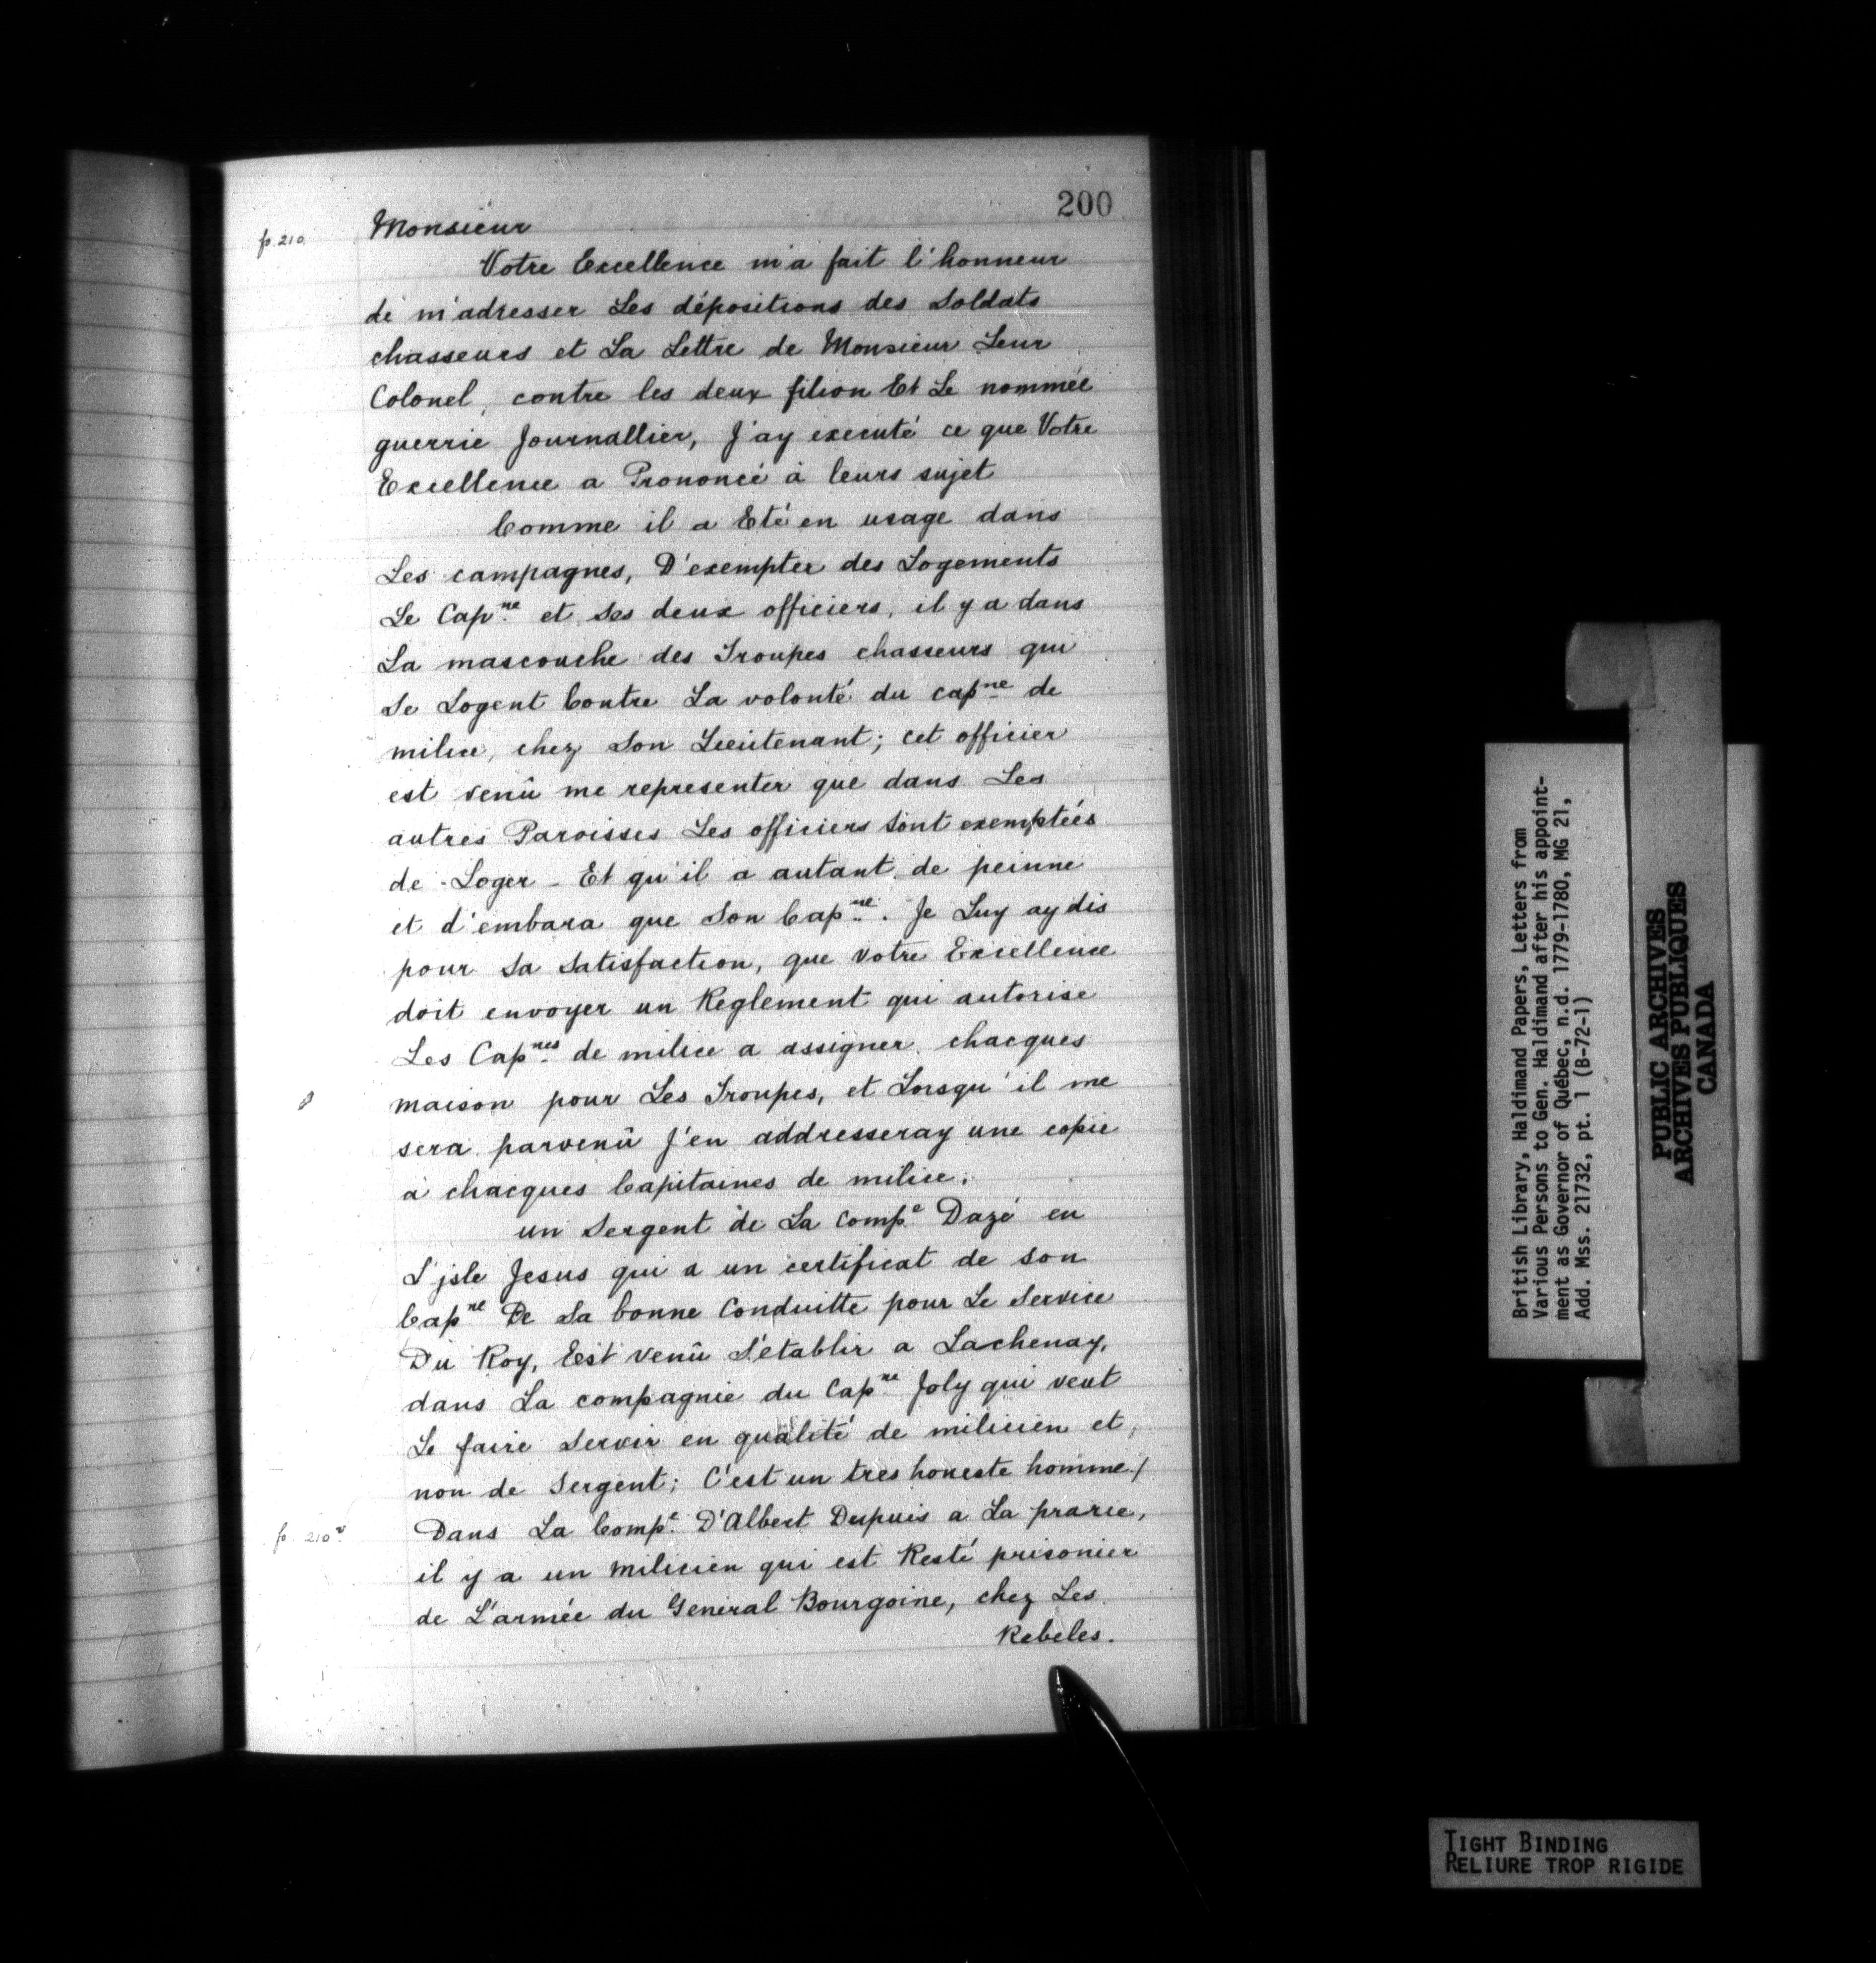 200
f. 210
Monsieur
Votre Excellence m'a fait l'honneur
de m'adresser Les dépositions des Soldats
chasseurs et La Lettre de Monsieur Leur
Colonel, contre les deux filion Et Le nommée
guerrie Journallier, J'ay executé ce que Votre
Excellence a Prononcé à leurs sujet
Comme il a Eté en usage dans
Les campagnes, D'exempter des Logements
Le Capne et Ses deux officiers, il y a dans
La mascouche des Troupes chasseurs qui
Se Logent Contre La volonté du capne de
milice, chez Son Lieutenant; cet officier
est venû me representer que dans Les
autres Paroisses Les officiers Sont exemptées
de Loger - Et qu'il a autant de peinne
et d'embara que Son Capne. Je Luy ay dis
pour Sa Satisfaction, que Votre Excellence
doit envoyer un Reglement qui autorise
Les Capnes de milice a assigner chacques
maison pour Les Troupes, et Lorsqu'il me
sera parvenû J'en addresseray une copie
à chacques Capitaines de milice;
un Sergent de La Compe Dazé en
L'jsle Jesus qui a un certificat de son
Capne De Sa bonne Conduitte pour Le Service
Du Roy, Est venû S'établir a Lachenay,
dans La compagnie du Capne Joly qui veut
Le faire Servir en qualité de milicien et,
non de Sergent; C'est un tres honeste homme /
f. 210v
Dans La Compe D'Albert Dupuis a La prarie,
il y a un milicien qui est Resté prisonier
de L'armée du General Bourgoine, chez Les
Rebeles.
British Library, Haldimand Papers, Letters from
Various Persons to Gen. Haldimand after his appoint-
ment as Governor of Québec, n.d. 1779-1780, MG 21,
Add. Mss. 21732, pt. 1 (B-72-1)
PUBLIC ARCHIVES
ARCHIVES PUBLIQUES
CANADA
TIGHT BINDING
RELIURE TROP RIGIDE